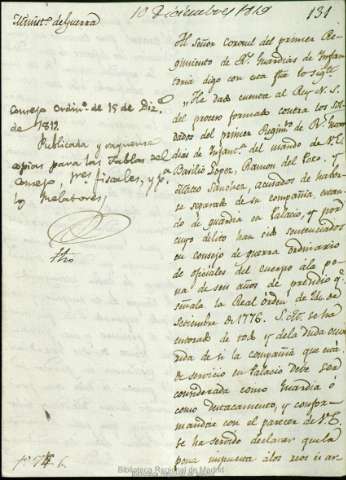 Minist.º de Guerra
10 Diciembre 1819
131
Al Señor Coronel del primer Re-
gimiento de R.s Guardias de Infan-
tería digo con esta fha lo sig.te
"He dado cuenta al Rey N. S.
del proceso formado contra los Sol-
dados del primer Regim.to de R.s Guar-
dias de Infant.a del mando de V.E.
Basilio Lopez, Ramon del Pozo, y
Mateo Sanchez, acusados de haber-
se separado de su compañia estan-
do de guardia en Palacio, y por
cuyo delito han sido sentenciados
en consejo de guerra ordinario
de oficiales del cuerpo á la pe-
na de seis años de presidio q.e
señala la Real orden de de
de 1776. S.M. se ha
enterado de todo y de la duda ocur-
rida de si la compañia que está
de servicio en Palacio debe ser
considerada como Guardia ó
como destacamento, y confor-
mandose con el parecer de V.E.
se ha servido declarar que la
pena impuesta á los reos es ar-
Consejo Ordin.o de 15 de Diz.e
de
Publicada y
copias para las Salas del
Consejo, tres fiscales, y p.a
los Relatores
Biblioteca Regional de Madrid